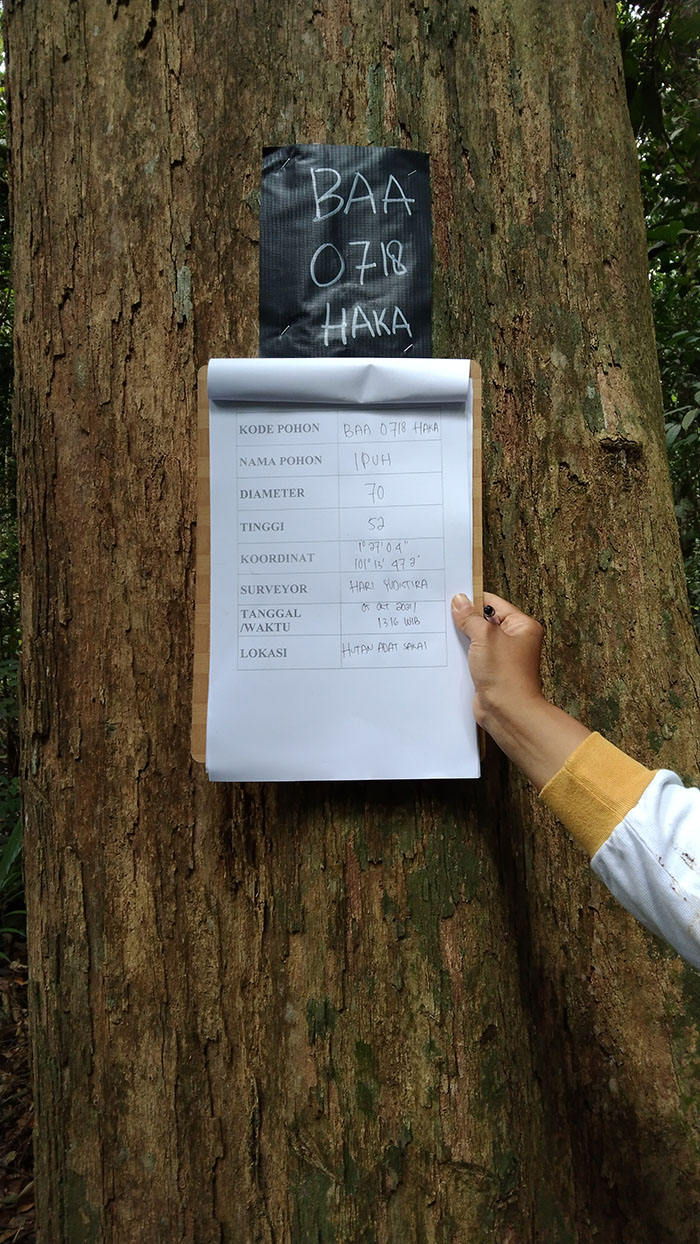 BAA
0718
HAKA
KODE POHON BAA 0718 HAKA
NAMA POHON IPUH
DIAMETER 70
TINGGI 52
KOORDINAT 1° 27' 0.4"
101° 13' 47.2"
SURVEYOR HARI YUDISTIRA
TANGGAL 05 OKT 2021/
/WAKTU 13.16 WIB
LOKASI HUTAN ADAT SAKAI